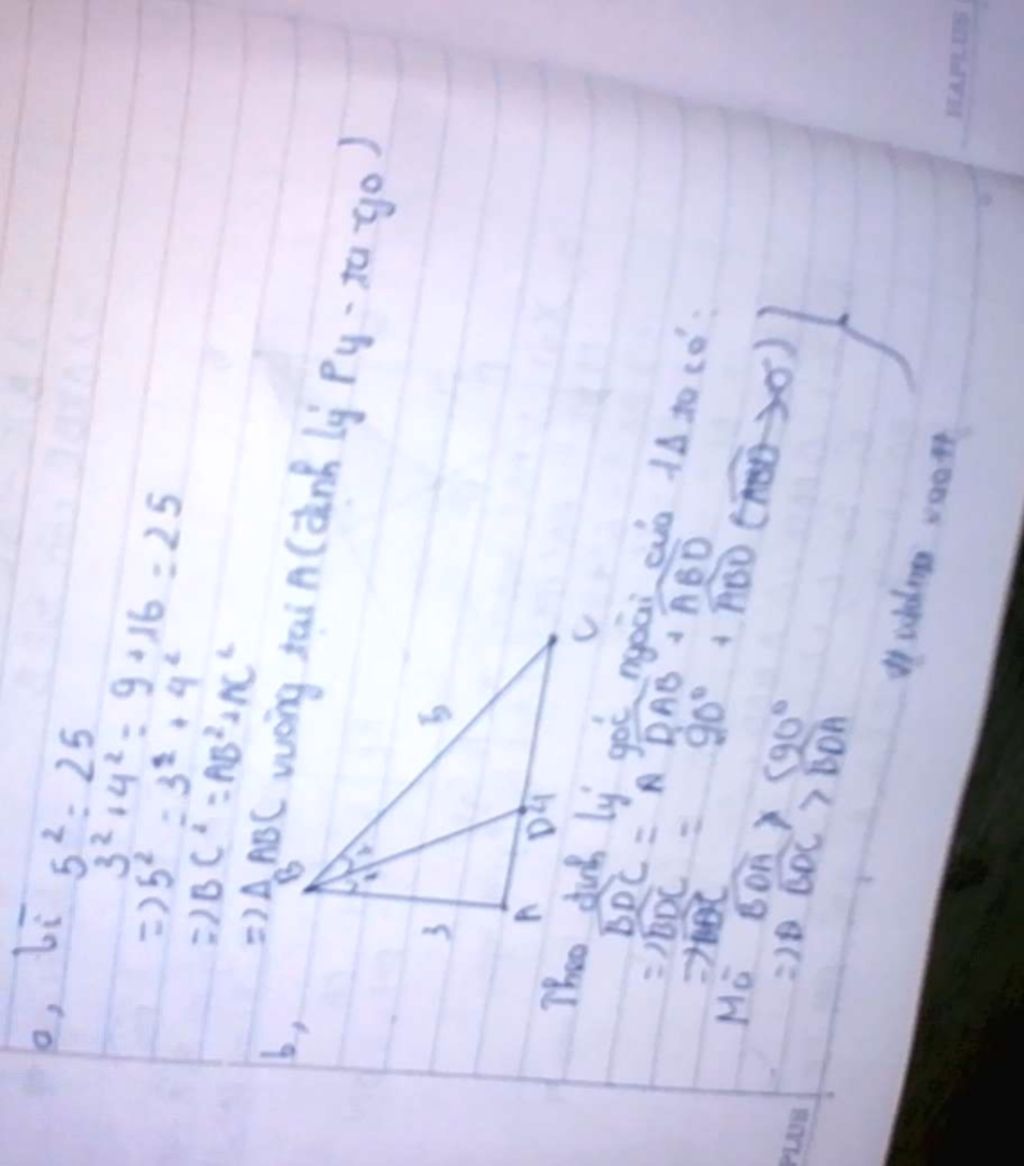 a, bì 5² = 25
3² + 4² = 9 + 16 = 25
=> 5² = 3² + 4²
=> BC² = AB² + AC²
=> Δ ABC vuông tại A (định lý Py-ta-go)
b,
B
3
5
A
D
4
C
Theo định lý góc ngoài của 1 Δ ta có:
BDC = A
=> BDC = DAB + ABD
=> BDC = 90° + ABD (ABD > 0)
Mà BDA > (90°
=> BDC > BDA
HAPLUS
PLUS